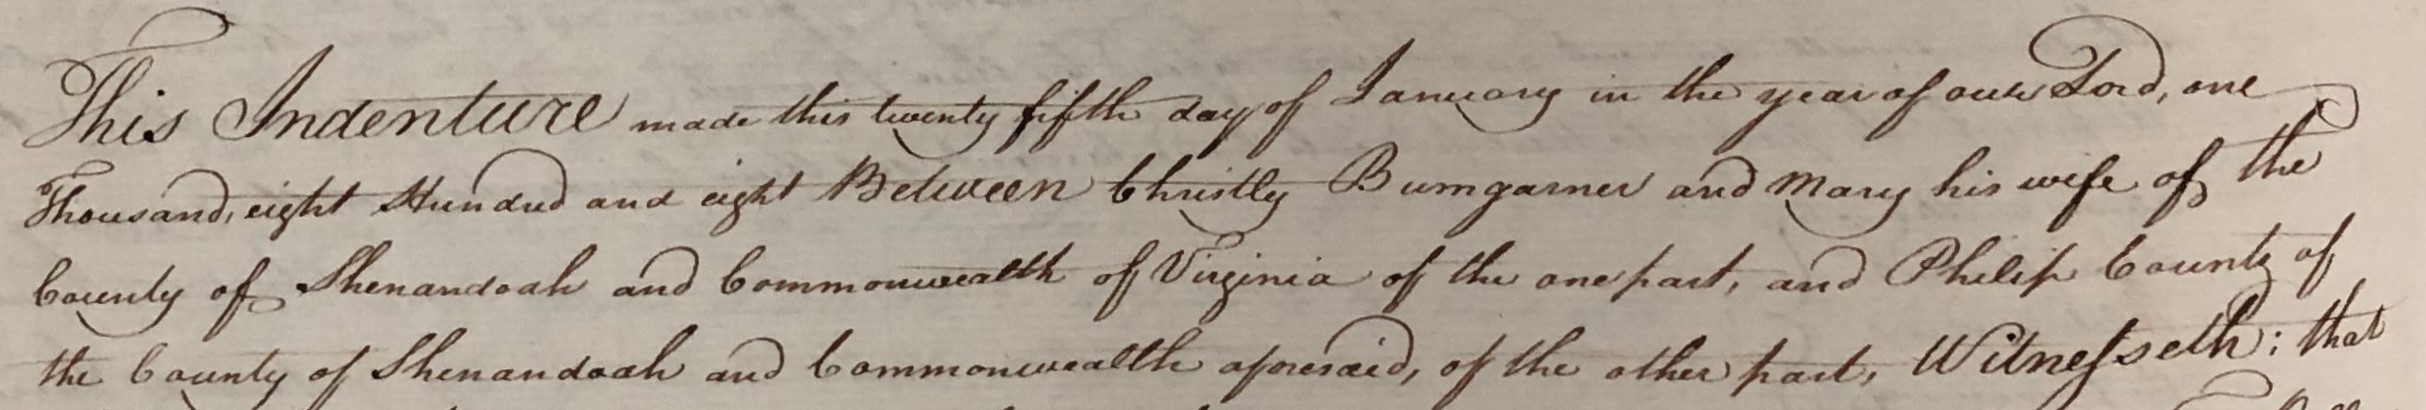 This Indenture made this twenty fifth day of January in the year of our Lord, one
Thousand, eight Hundred and eight Between Christly Bumgarner and Mary his wife of the
County of Shenandoah and Commonwealth of Virginia of the one part, and Philip County of
the County of Shenandoah and Commonwealth aforesaid, of the other part, Witnesseth; that